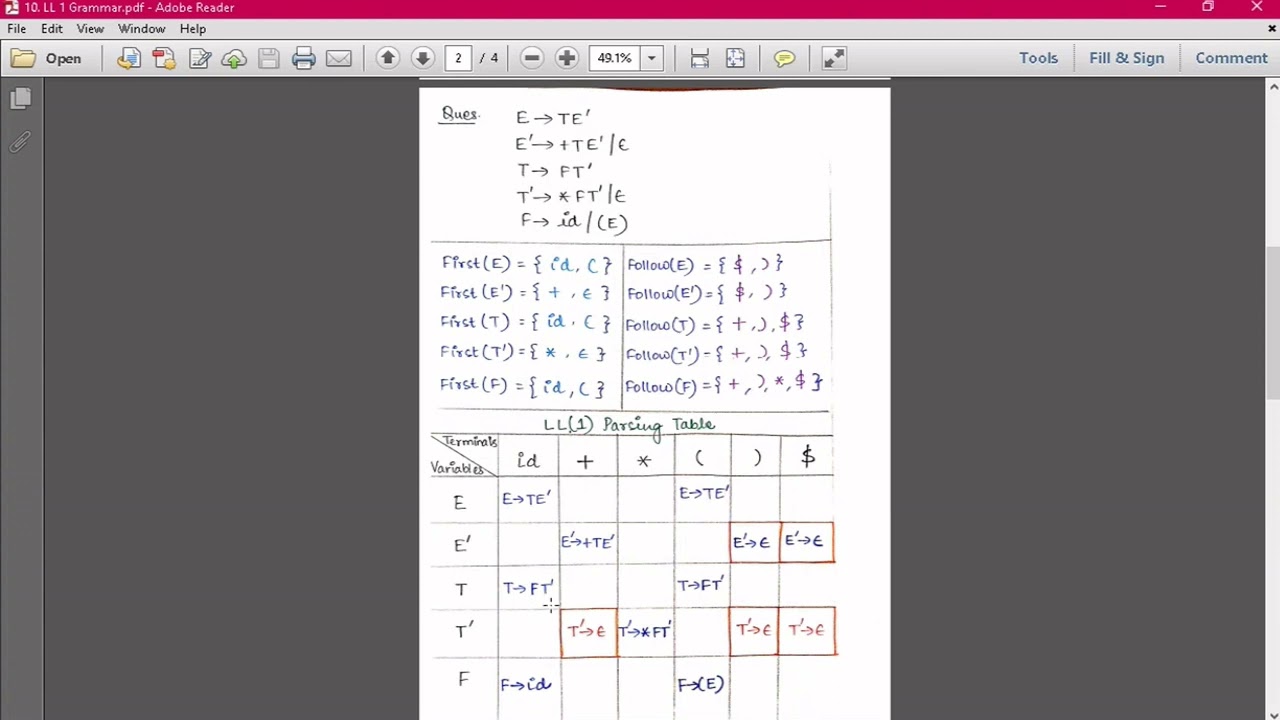 10. LL 1 Grammar.pdf - Adobe Reader
File Edit View Window Help
Open 2 / 4 49.1% Tools Fill & Sign Comment
Ques. E → TE'
E' → +TE' / ϵ
T → FT'
T' → *FT' / ϵ
F → id / (E)
First(E) = { id, ( } Follow(E) = { $, ) }
First(E') = { +, ϵ } Follow(E') = { $, ) }
First(T) = { id, ( } Follow(T) = { +, ), $ }
First(T') = { *, ϵ } Follow(T') = { +, ), $ }
First(F) = { id, ( } Follow(F) = { +, ), *, $ }
LL(1) Parsing Table
Terminals
Variables id + * ( ) $
E E→TE' E→TE'
E' E'→+TE' E'→ϵ E'→ϵ
T T→FT' T→FT'
T' T'→ϵ T'→*FT' T'→ϵ T'→ϵ
F F→id F→(E)